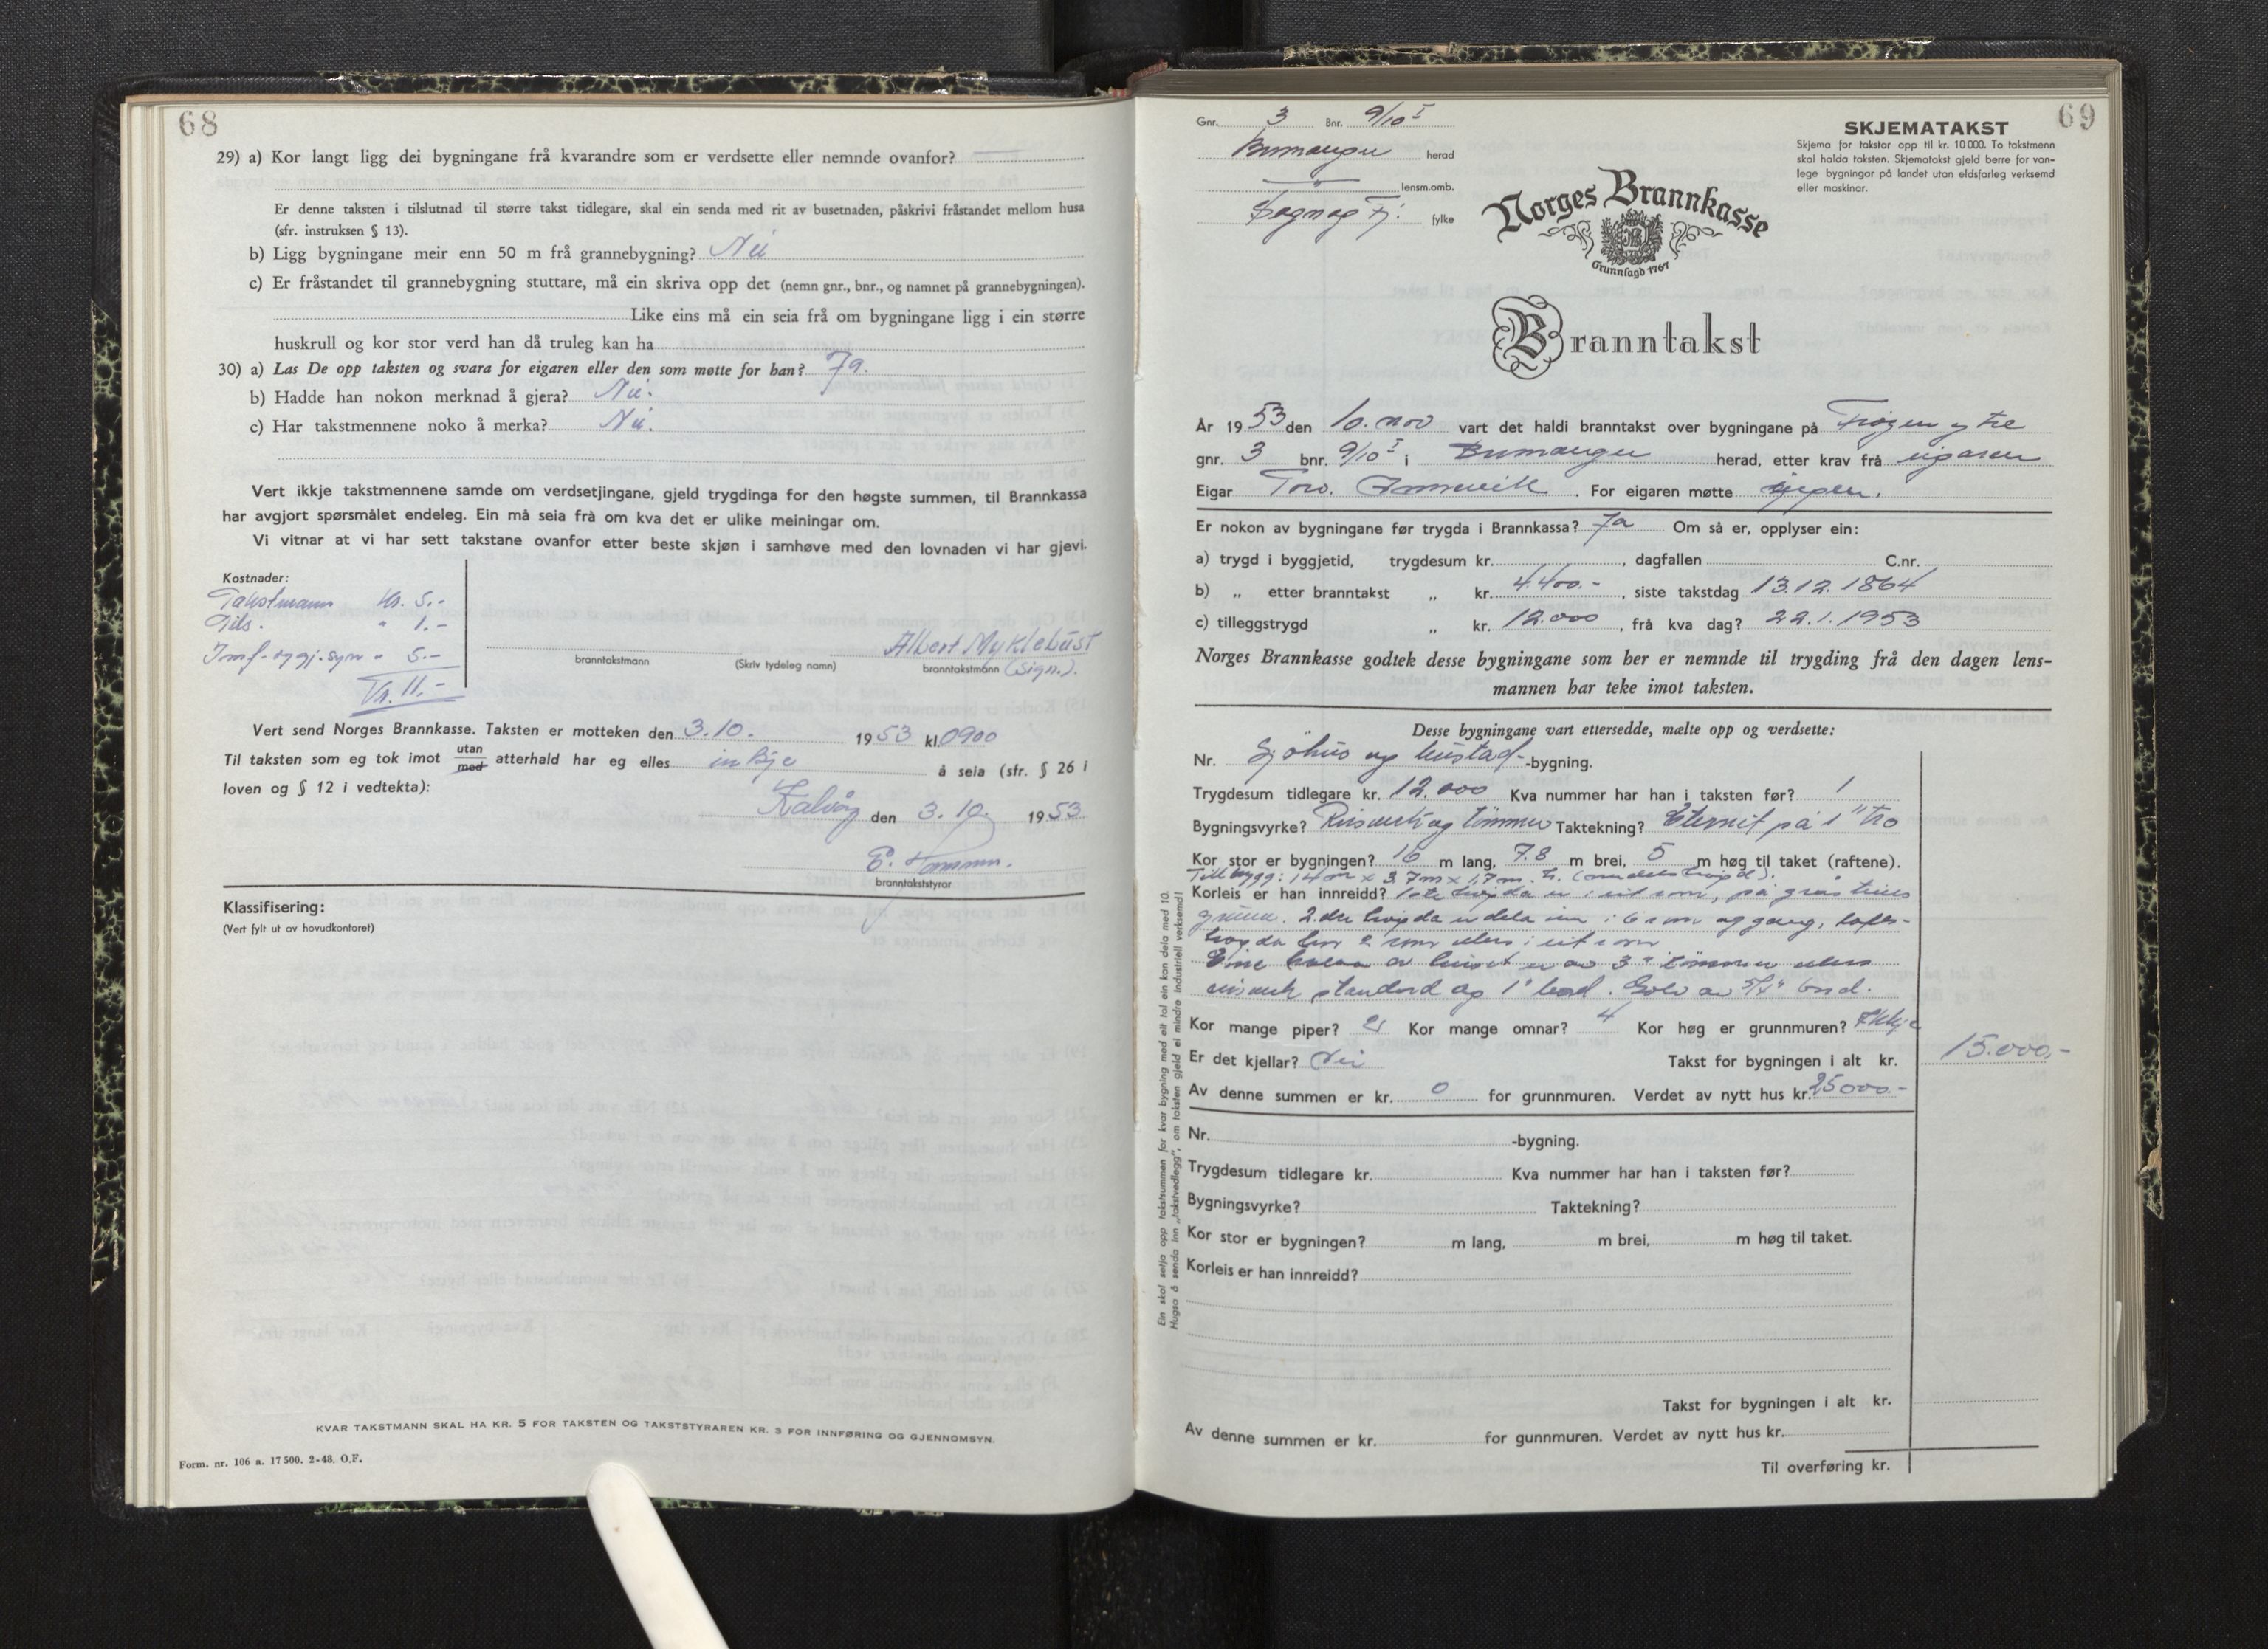 68
29) a) Kor langt ligg dei bygningane frå kvarandre som er verdsette eller nemnde ovanfor?
Er denne taksten i tilslutnad til større takst tidlegare, skal ein senda med rit av busetnaden, påskrivi fråstandet mellom husa
(sfr. instruksen § 13).
b) Ligg bygningane meir enn 50 m frå grannebygning? Nei
c) Er fråstandet til grannebygning stuttare, må ein skriva opp det (nemn gnr., bnr., og namnet på grannebygningen).
Like eins må ein seia frå om bygningane ligg i ein større
huskrull og kor stor verd han då truleg kan ha
30) a) Las De opp taksten og svara for eigaren eller den som møtte for han? Ja.
b) Hadde han nokon merknad å gjera? Nei.
c) Har takstmennene noko å merka? Nei.
Vert ikkje takstmennene samde om verdsetjingane, gjeld trygdinga for den høgste summen, til Brannkassa
har avgjort spørsmålet endeleg. Ein må seia frå om kva det er ulike meiningar om.
Vi vitnar at vi har sett takstane ovanfor etter beste skjøn i samhøve med den lovnaden vi har gjevi.
Kostnader:
Takstmann kr. 5.-
" 1.-
Innf. og gj.syn " 5.-
Kr. 11.-
Albert Myklebust
branntakstmann (Skriv tydeleg namn) branntakstmann (sign.).
Vert send Norges Brannkasse. Taksten er motteken den 3.10. 1953 kl. 0900
Til taksten som eg tok imot utan med atterhald har eg elles inkje å seia (sfr. § 26 i
loven og § 12 i vedtekta):
Kalvåg den 3.10. 1953
E.
branntakststyrar
Klassifisering:
(Vert fylt ut av hovudkontoret)
KVAR TAKSTMANN SKAL HA KR. 5 FOR TAKSTEN OG TAKSTSTYRAREN KR. 3 FOR INNFØRING OG GJENNOMSYN.
Form. nr. 106 a. 17 500. 2-48. O.F.
69
Gnr. 3 Bnr. 9/10 I
Bremanger herad
lensm.omb.
Sogn og Fj. fylke
SKJEMATAKST
Skjema for takstar opp til kr. 10 000. To takstmenn
skal halda taksten. Skjematakst gjeld berre for van-
lege bygningar på landet utan eldsfarleg verksemd
eller maskinar.
Norges Brannkasse
Grunnlagd 1767
Branntakst
År 1953 den 10. nov vart det haldi branntakst over bygningane på Frøyen ytre
gnr. 3 bnr. 9/10 I i Bremanger herad, etter krav frå eigaren
Eigar Torv. . For eigaren møtte
Er nokon av bygningane før trygda i Brannkassa? Ja Om så er, opplyser ein:
a) trygd i byggjetid, trygdesum kr. , dagfallen C.nr.
b) „ etter branntakst „ kr. 4.400.- , siste takstdag 13.12.1864
c) tilleggstrygd „ kr. 12.000 , frå kva dag? 22.1.1953
Norges Brannkasse godtek desse bygningane som her er nemnde til trygding frå den dagen lens-
mannen har teke imot taksten.
Desse bygningane vart ettersedde, mælte opp og verdsette:
Nr. Sjöhus og bustad -bygning.
Trygdesum tidlegare kr. 12.000 Kva nummer har han i taksten før? 1
Bygningsvyrke? Reisverk og tömmer Taktekning? Eternit på 1" tro
Kor stor er bygningen? 16 m lang, 7.8 m brei, 5 m høg til taket (raftene).
Tilbygg: 14 m x 3,7 m x 1,7 m. h. (middelshøgd).
Korleis er han innreidd? 1ste høgda er i eit rom, på gråsteins
grunn. 2. dre høgda er dela inn i 6 rom og gang, lofts-
høgda har 2 rom elles i eit rom
Eine halva av huset er av 3" tömmer elles
reisverk standard og 1" bord. Golv av 5/4" bord.
Kor mange piper? 2 Kor mange omnar? 4 Kor høg er grunnmuren? Ikkje
Er det kjellar? Nei Takst for bygningen i alt kr. 15.000,-
Av denne summen er kr. 0 for grunnmuren. Verdet av nytt hus kr. 25000.-
Nr. -bygning.
Trygdesum tidlegare kr. Kva nummer har han i taksten før?
Bygningsvyrke? Taktekning?
Kor stor er bygningen? m lang, m brei, m høg til taket.
Korleis er han innreidd?
Takst for bygningen i alt kr.
Av denne summen er kr. for gunnmuren. Verdet av nytt hus kr.
Til overføring kr.
Ein skal setja opp takstsummen for kvar bygning med eit tal ein kan dela med 10.
Hugsa å senda inn „takstvedlegg", om taksten gjeld ei mindre industriell verksemd!